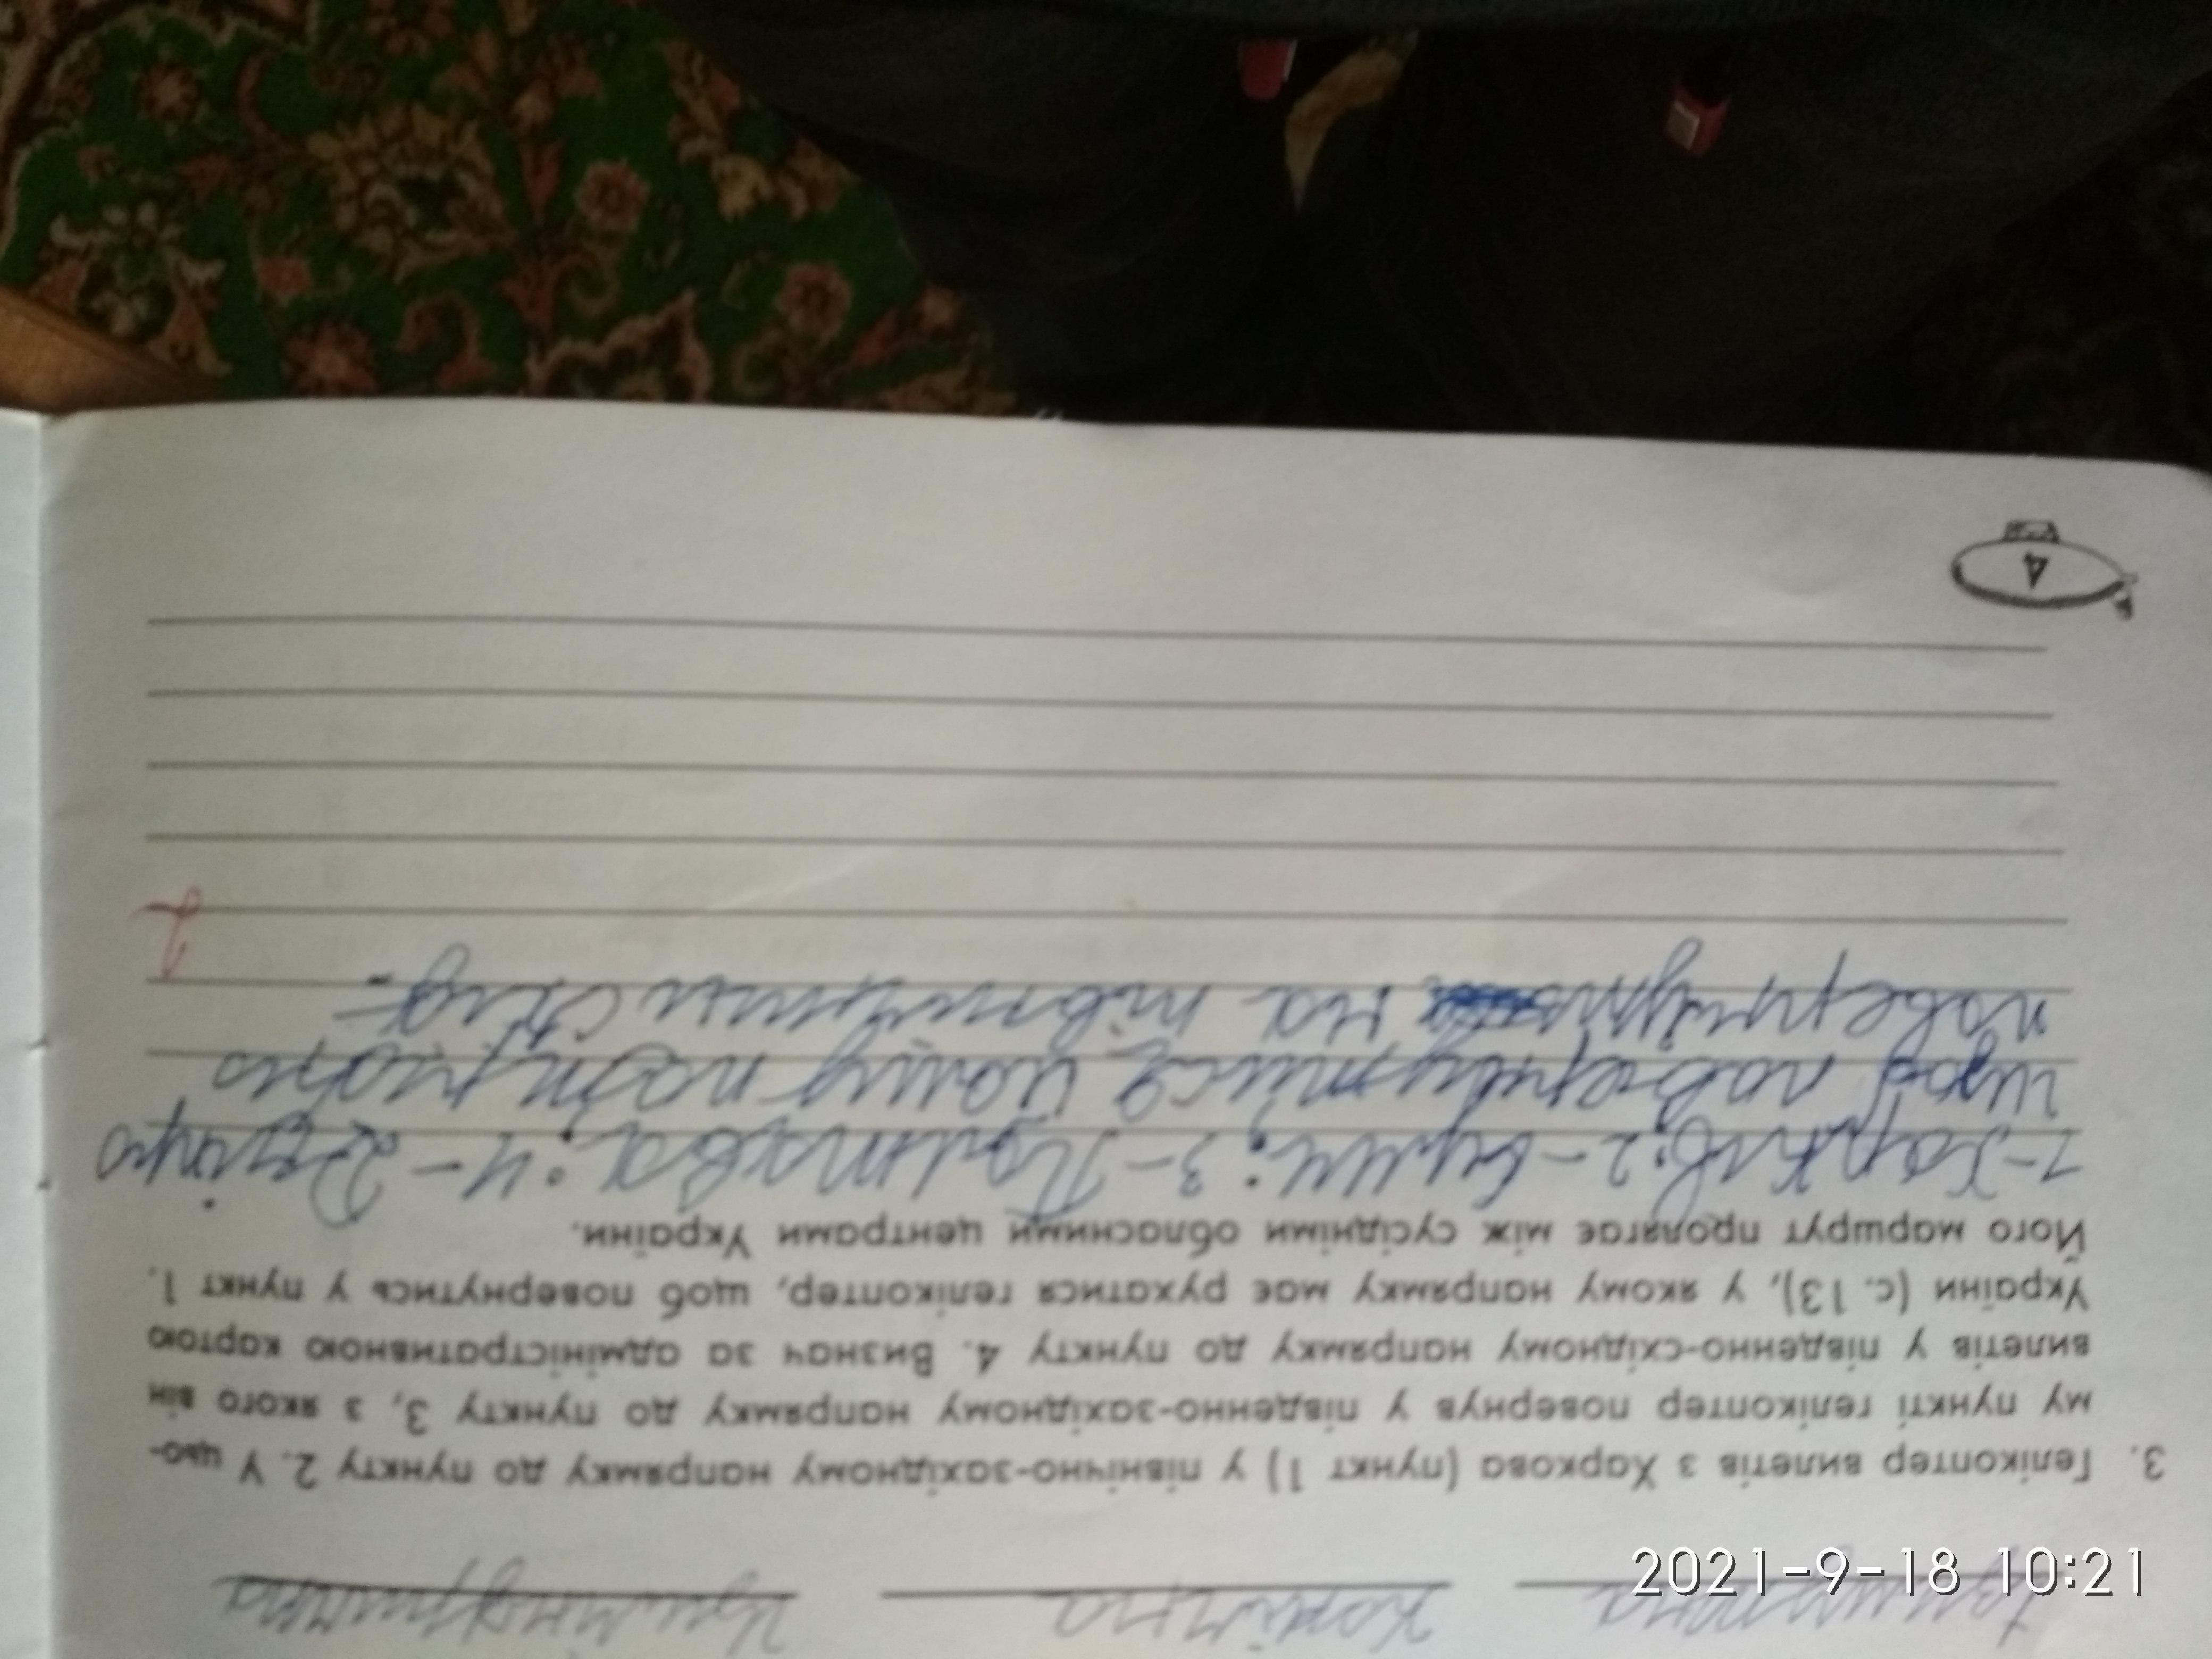 Konічна
3. Гелікоптер вилетів з Харкова (пункт 1) у північно-західному напрямку до пункту 2. У цьо-
му пункті гелікоптер повернув у південно-західному напрямку до пункту 3, з якого він
вилетів у південно-східному напрямку до пункту 4. Визнач за адміністративною картою
України (с. 13), у якому напрямку має рухатися гелікоптер, щоб повернутись у пункт 1.
Його маршрут пролягає між сусідніми обласними центрами України.
1-Харків; 2-Суми; 3-Полтава; 4-Дніпро
щоб повернутися йому потрібно
повернути на північний схід.
1
4
2021-9-18 10:21